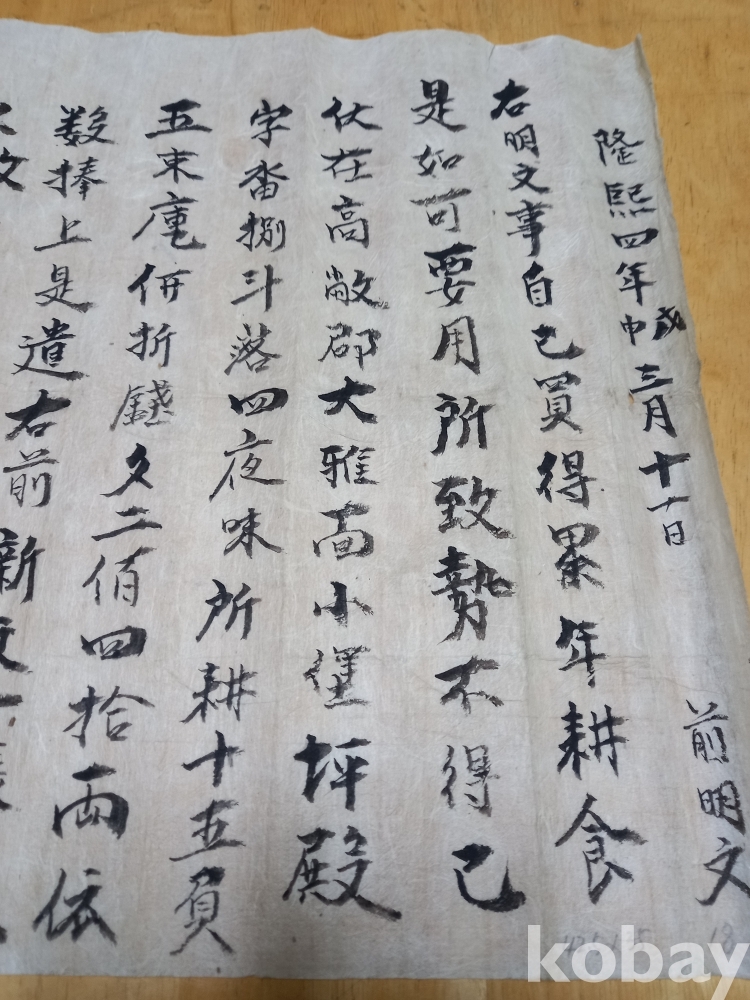 隆熙四年庚戌三月十一日 前明文
右明文事自己買得累年耕食
是如可要用所致勢不得已
伏在高敞郡大雅面小堡坪殿
字畓捌斗落四夜味所耕十五負
五束庫伻折錢文二佰四拾兩依
数捧上是遣右前
新
kobay